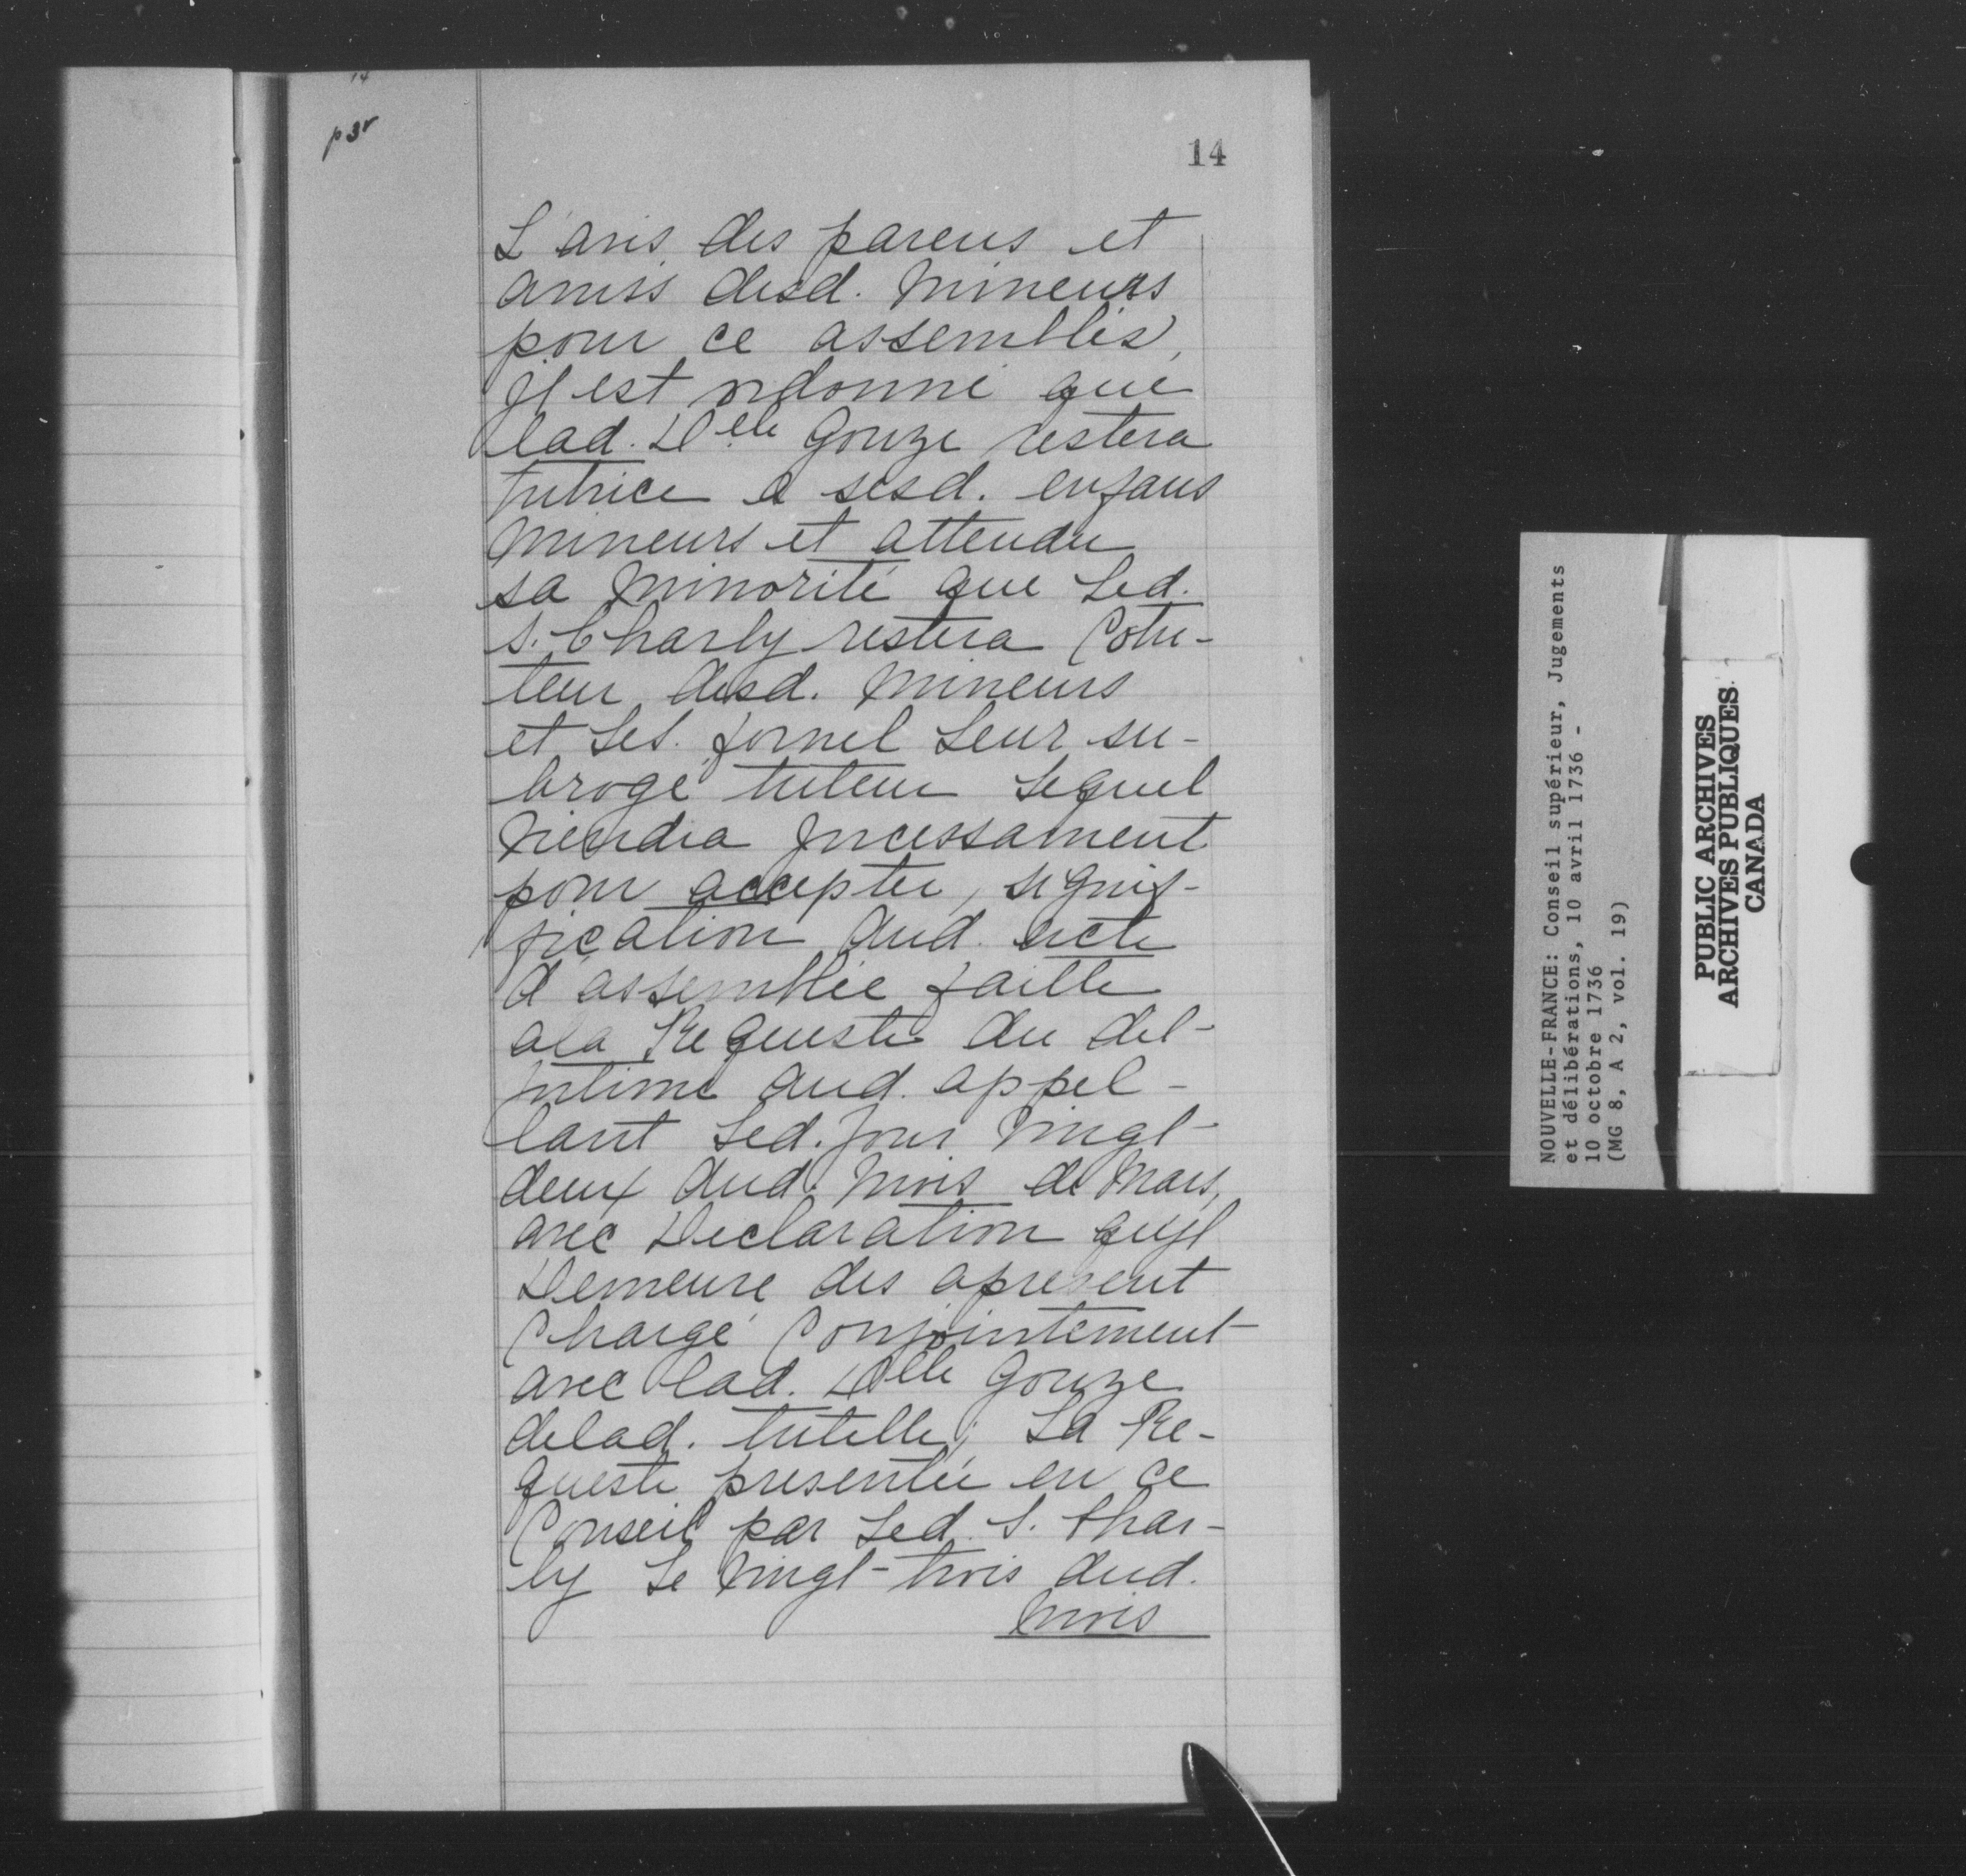 14
p 3r
14
L'avis des parens et
amiss desd. Mineurs
pour ce assemblés,
Jl est ordonné que
lad. Delle Gouze restera
tutrice a sesd. enfans
Mineurs et attendu
sa Minorité que Led.
S. Charly restera Cotu-
teur desd. Mineurs
et Le S. fornel Leur su-
brogé tuteur Lequel
viendra Jncessament
pour accepter, signif-
fication dud. acte
d'assemblée faitte
ala Requeste du de l-
Jntimé aud. appel-
lant Led. Jour Vingt-
deux dud. Mois de Mars,
avec Declaration qujl
Demeure des apresent
Chargé Conjointement
avec lad. Delle Gouze
delad. tutelle; La Re-
queste presentée en ce
Conseil par Led. S. Char-
ly Le Vingt-trois dud.
Mois
NOUVELLE-FRANCE: Conseil supérieur, Jugements
et délibérations, 10 avril 1736 -
10 octobre 1736
(MG 8, A 2, vol. 19)
PUBLIC ARCHIVES
ARCHIVES PUBLIQUES
CANADA